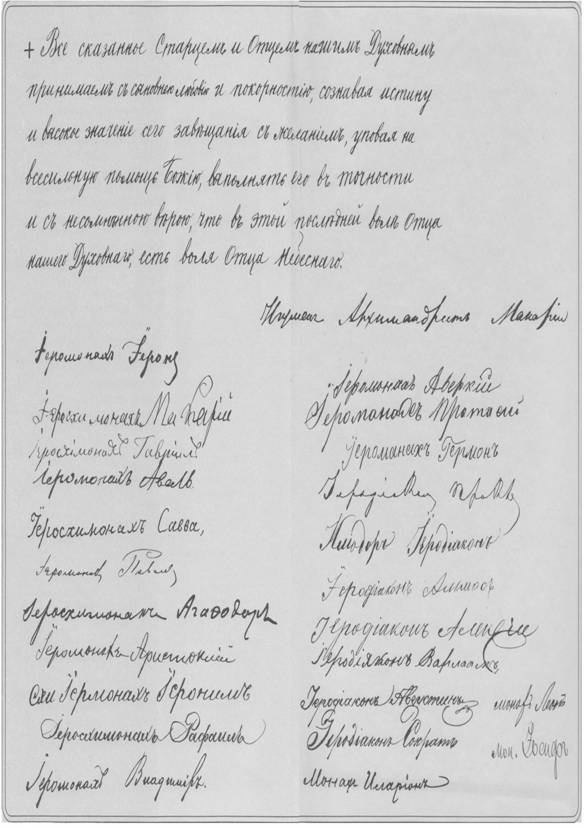 + Все сказанное Старцемъ и Отцемъ нашимъ Духовнымъ
принимаемъ съ сыновнею любовію и покорностію, сознавая истину
и высокое значеніе сего завѣщанія съ желаніемъ, уповая на
всесильную помощь Божію, выполнять его въ точности
и съ несомнѣнною вѣрою, что въ этой послѣдней волѣ Отца
нашего Духовнаго, есть воля Отца Небеснаго.
Игуменъ Архимандритъ Макарій
Іеромонахъ
Іеросхимонахъ Макарій
Іеросхімонахъ Гавріилъ
Іеромонахъ
Іеросхимонахъ Савва,
Іеромонахъ Павелъ
Іеросхимонахъ Агаѳодоръ
Іеромонахъ Аристоклій
Схи Іермонахъ Іеронимъ
Іеросхимонахъ Рафаилъ
Іеромонахъ Владиміръ.
Іеромонахъ Аверкій
Іеромонахъ Протасій
Іеромонахъ Гермонъ
Іеродіаконъ
Іеродіаконъ
Іеродіаконъ
Іеродіаконъ
Іеродіяконъ Варлаамъ
Іеродіаконъ Августинъ
Іеродіаконъ Сократъ
Монахъ Иларіонъ
мон.